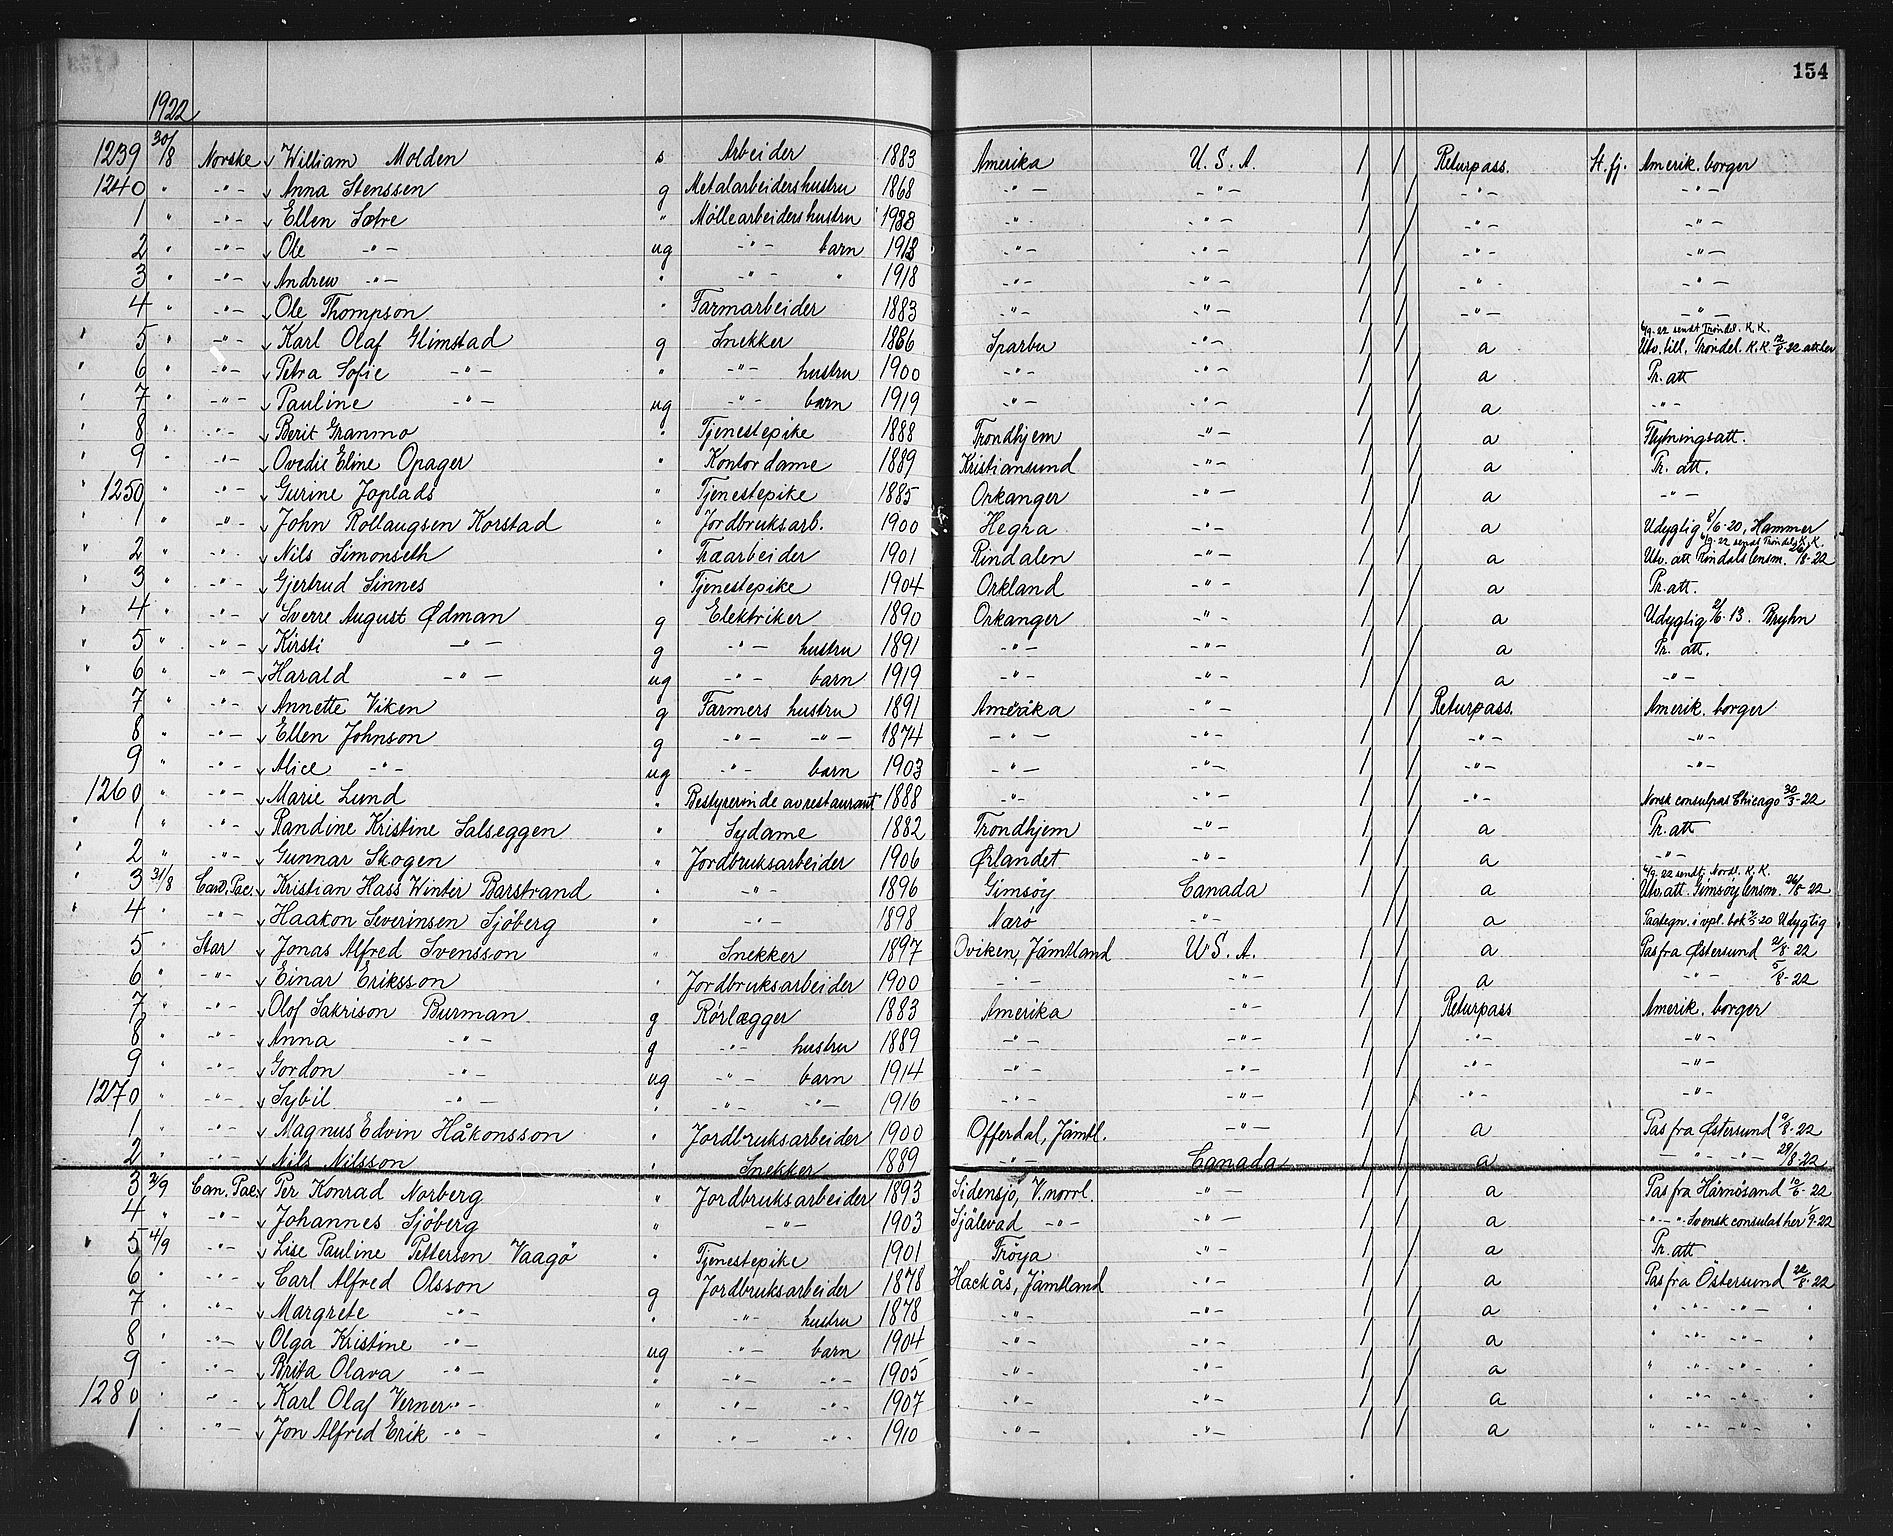 154
1922
1239 30/8 Norske v William Molden s Arbeider 1883 Amerika U. S. A. / / Returpass. St. fj. Amerik. borger
1240 " -"- v Anna Stenssen g Metalarbeiders hustru 1868 -"- -"- / / -"- -"-
1 " -"- v Ellen Sætre " Møllearbeiders hustru -"- -"- / / -"- -"-
2 " -"- v Ole -"- ug -"- barn -"- -"- / / -"- -"-
3 " -"- v Andrew -"- " -"- " 1918 -"- -"- / / -"- -"-
4 " -"- v Ole Thompson " Farmarbeider 1883 -"- -"- / / -"- -"-
" 5 " -"- v Karl Olaf Glimstad g Snekker 1886 Sparbu -"- / / a 6/9-22 sendt Trøndel. K.K. Utv. till. Trøndel. K.K. 12/8-22 att.her
" 6 " -"- v Petra Sofie -"- " -"- hustru 1900 -"- -"- / / a Pr. att
" 7 " -"- v Pauline -"- ug -"- barn 1919 -"- -"- / / a -"-
" 8 " -"- v Berit Granmo " Tjenestepike 1888 Trondhjem -"- / / a Flytningsatt.
" 9 " -"- v Ovedie Eline Opager " Kontordame 1889 Kristiansund -"- / / a Pr. att.
" 1250 " -"- v Gurine Joplads " Tjenestepike 1885 Orkanger -"- / / a -"-
" 1 " -"- v John Rollaugsen Korstad " Jordbruksarb. 1900 Hegra -"- / / a Udyglig 8/6-20, Hammer
" 2 " -"- v Nils Simonseth " Træarbeider 1901 Rindalen -"- / / a 6/9-22 sendt Trøndel. K.K. Utv. att Rindals lensm. 26/8-22
" 3 " -"- v Gjertrud Sinnes " Tjenestepike 1904 Orkland -"- / / a Pr. att.
" 4 " -"- v Sverre August Ødman g Elektriker 1890 Orkanger -"- / / a Udyglig 2/6-13. Bryhn
" 5 " -"- v Kirsti -"- g -"- hustru 1891 -"- -"- / / a Pr. att.
" 6 " -"- v Harald -"- ug -"- barn 1919 -"- -"- / / a -"-
7 " -"- v Annette Viken g Farmers hustru 1891 Amerika -"- / / Returpass. Amerik. borger
8 " -"- v Ellen Johnson g -"- -"- 1874 -"- -"- / / -"- -"-
9 " -"- v Alice -"- ug -"- barn 1903 -"- -"- / / -"- -"-
1260 " -"- v Marie Lund " Bestyrerinde av restaurant 1888 -"- -"- / / -"- Norsk consulpas Chicago 30/3-22
" 1 " -"- v Randine Kristine Salseggen " Sydame 1882 Trondhjem -"- / / a Pr. att
" 2 " -"- v Gunnar Skogen " Jordbruksarbeider 1906 Ørlandet -"- / / a -"-
" 3 31/8 Can. Pac. v Kristian Hass Winter Barstrand " -"- 1896 Gimsøy Canada / / a 6/9-22 sendt Nordl. K.K. Utv. att. Gimsøy lensm. 26/8-22
" 4 " -"- v Haakon Severinsen Sjöberg " -"- 1898 Nærö -"- / / a Paategn. i vpl. bok 20 Udygtig
5 " Star v Jonas Alfred Svensson " Snekker 1897 Oviken, Jämtland U.S.A. / / a Pas fra Østersund 2/8-22
6 " -"- v Einar Eriksson " Jordbruksarbeider 1900 -"- -"- / / a -"- 5/8-22
7 " -"- v Olof Sakrison Burman g Rørlægger 1883 Amerika -"- / / Returpass Amerik. borger
8 " -"- v Anna -"- g -"- hustru 1889 -"- -"- / / -"- -"-
9 " -"- v Gordon -"- ug -"- barn 1914 -"- -"- / / -"- -"-
1270 " -"- v Sybil -"- " -"- -"- 1916 -"- -"- / / -"- -"-
1 " -"- v Magnus Edvin Håkonsson " Jordbruksarbeider 1900 Offerdal, Jämtl. -"- / / a Pas fra Østersund 9/8-22
2 " -"- v Nils Nilsson " Snekker 1889 -"- Canada / / a -"- -"- 28/8-22
3 2/9 Can. Pac. v Per Konrad Norberg " Jordbruksarbeider 1893 Sidensjö, V.norrl. -"- / / a Pas fra Härnösand 10/6-22
4 " -"- v Johannes Sjöberg " -"- 1903 Själevad -"- -"- / / a -"-"- Svensk consulat her 1/9-22
" 5 4/9 -"- v Lise Pauline Pettersen Vaagö " Tjenestepike 1901 Fröya -"- / / a Pr. att
6 " -"- v Carl Alfred Olsson g Jordbruksarbeider 1878 Hackås, Jämtland -"- / / a Pas fra Östersund 22/8-22
7 " -"- v Margrete -"- " -"- hustru 1878 -"- -"- / / a " -"- -"- "
8 " -"- v Olga Kristine -"- ug -"- barn 1904 -"- -"- / / a " -"- -"- "
9 " -"- v Brita Olava -"- " -"- -"- 1905 -"- -"- / / a " -"- -"- "
1280 " -"- v Karl Olaf Verner -"- " -"- -"- 1907 -"- -"- / / a " -"- -"- "
1 " -"- v Jon Alfred Erik -"- " -"- -"- 1910 -"- -"- / / a " -"- -"- "